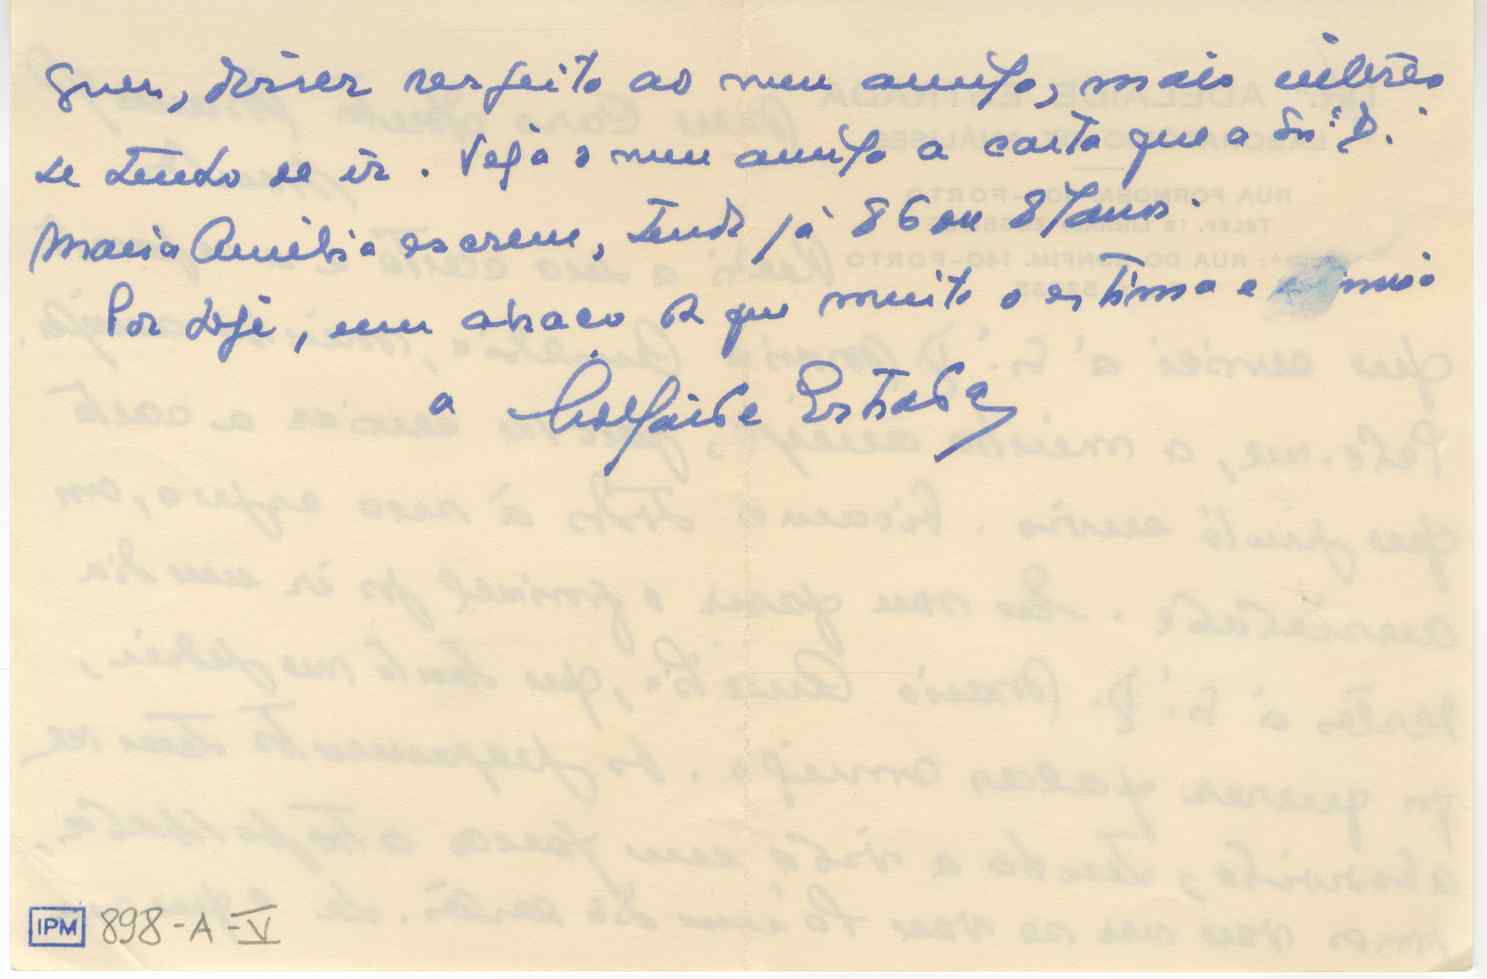 quer, dizer respeito ao meu amigo, mais interês
se tendo de ir. Veja o meu amigo a carta que a Snr.ª D.
Maria Amélia escreve, tendo já 86 ou 87 anos.
Por hoje, um abraço da que muito o estima e
a Adelaide Estrada
IPM 898-A-V